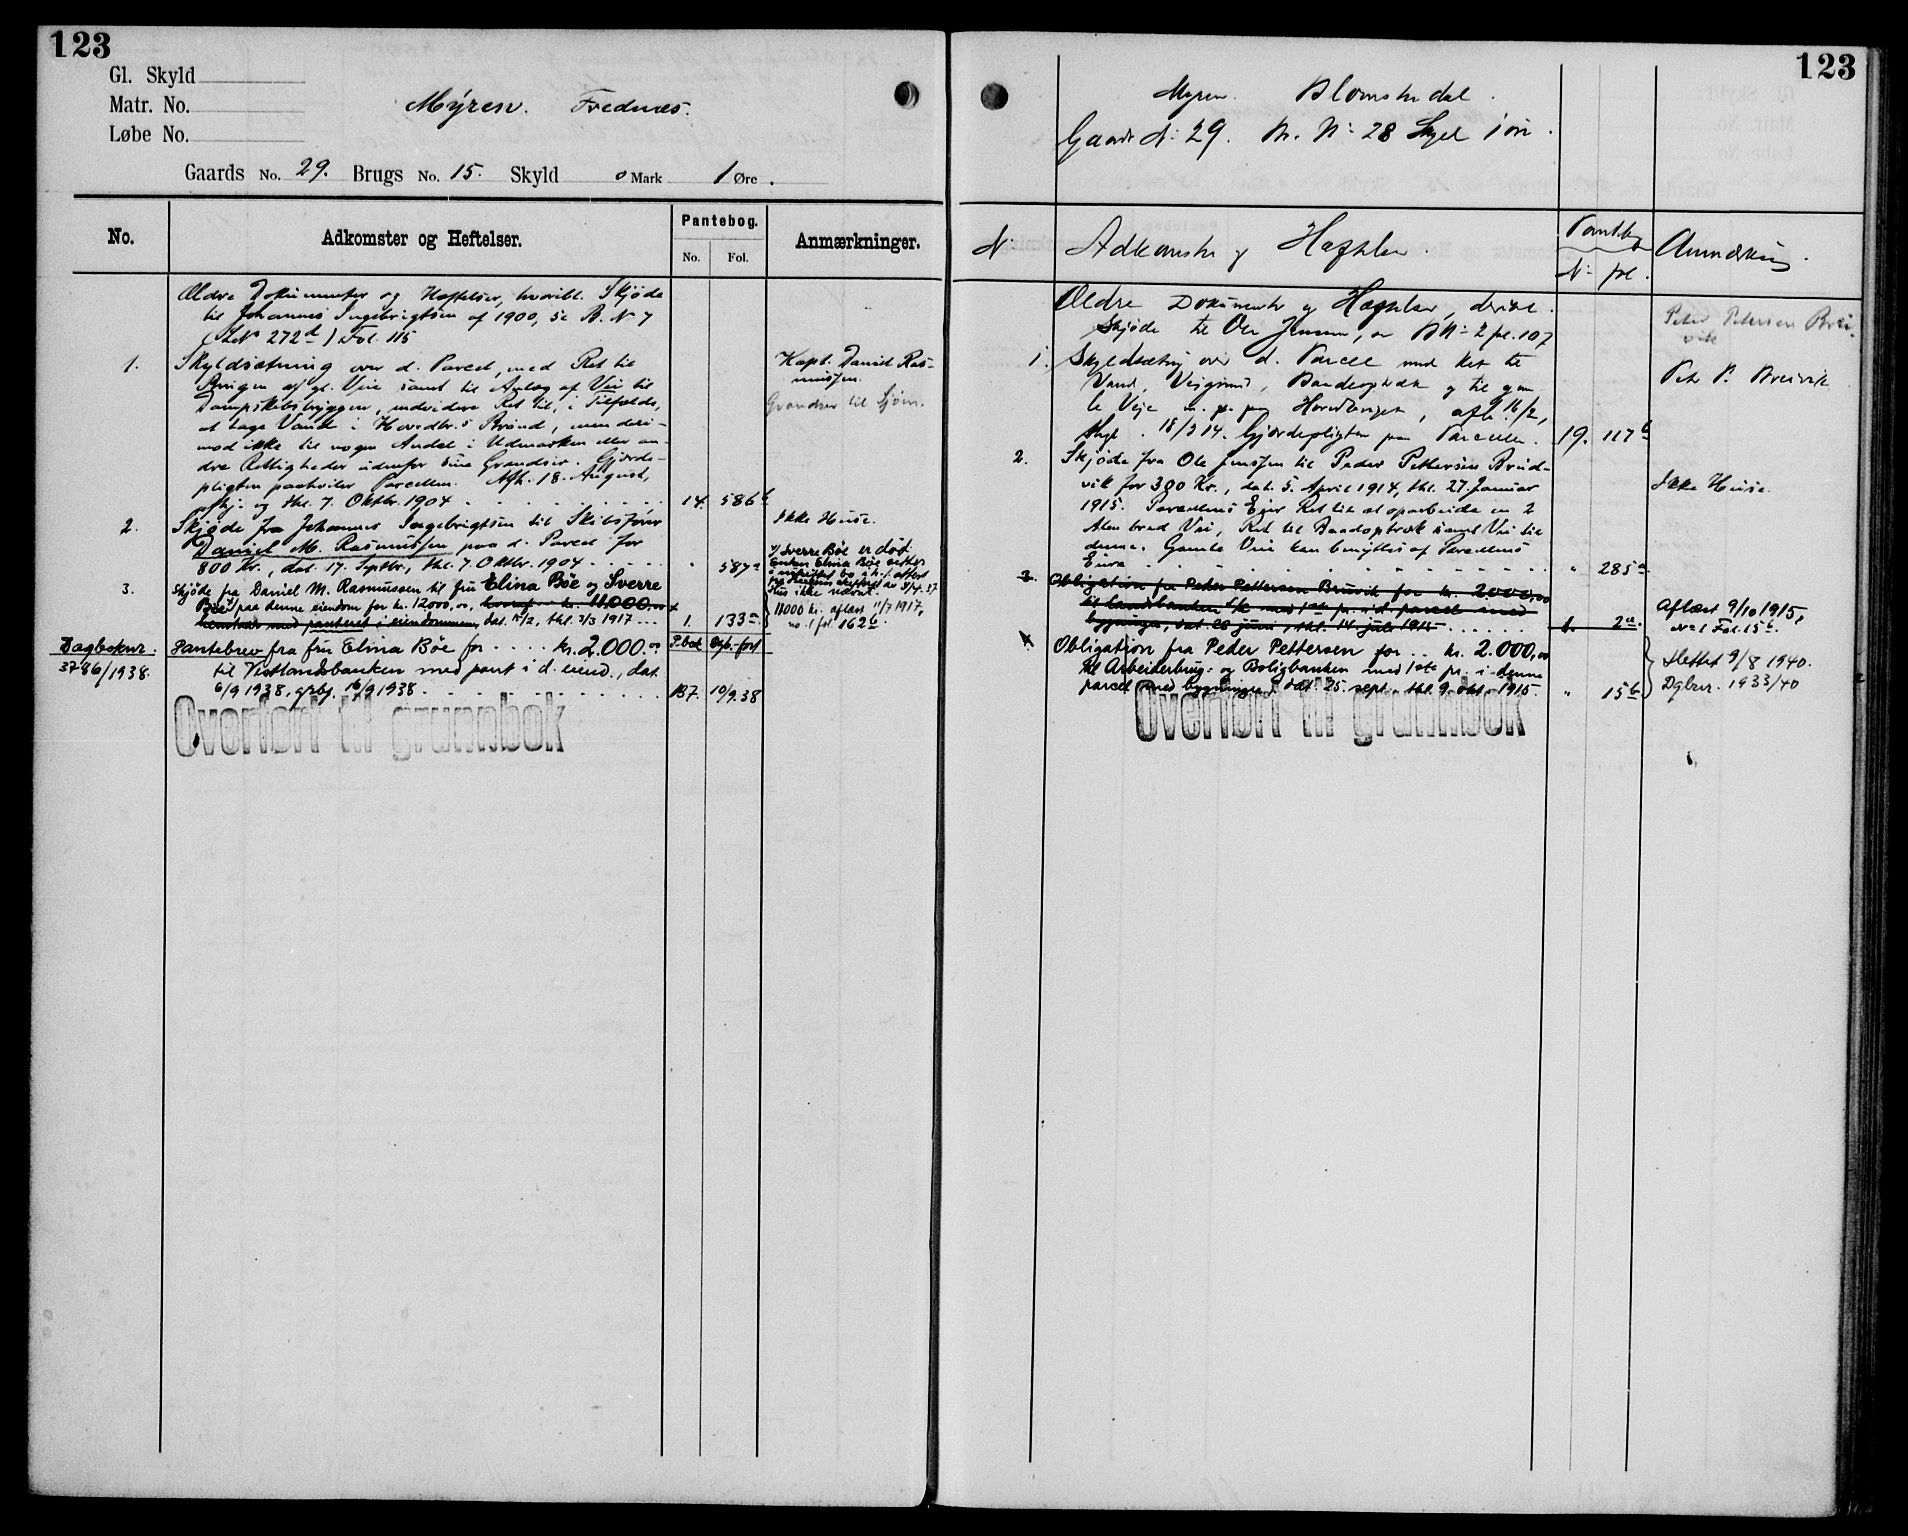 123
Gl. Skyld
Matr. No.
Løbe No.
Myren. Frednæs.
Gaards No. 29. Brugs No. 15. Skyld 0 Mark 1 Øre.
No.
Adkomster og Heftelser.
Pantebog.
No. Fol.
Anmærkninger.
Ældre Dokumenter og Heftelser, hvoribl. Skjøde
til Johannes Ingebrigtsen af 1900, se B. N 7
(LN 272d) Fol. 115
1. Skyldsætning over d. Parcel, med Ret til
Brugen af gl. Veie samt til Anlæg af Vei til
Dampskibsbryggen, endvidere Ret til, i Tilfælde,
at tage Vand i Hovedbr.s Brønd, men deri-
mod ikke til nogen Andel i Udmarken eller an-
dre Rettigheder udenfor sine Grændser. Gjerde-
pligten paahviler Parcellen. Afh. 18. August,
skj. og thl. 7. Oktbr. 1904 14. 586b
Kapt. Daniel Ras-
mussen.
Grændser til Sjøen.
2. Skjøde fra Johannes Ingebrigtsen til Skibsfører
Daniel M. Rasmussen paa d. Parcel for
800 Kr., dat. 17. Septbr., thl. 7. Oktbr. 1904 " 587a
Ikke Huse.
3. Skjøde fra Daniel M. Rasmussen til fru Elina Böe og Sverre
Böe x) paa denne eiendom for kr. 12000,00, hvoraf kr. 11.000,00
henstaar med panteret i eiendommen, dat. 15/2, thl. 3/3 1917 1. 133a
x) Sverre Böe er död.
Enken Elina Böe sitter
i uskiftet bo
Hus ikke nævnt.
11000 kr. aflæst 11/7 1917,
no. 1 fol. 162b.
Dagboknr.
3786/1938.
P.bok Dgb.-ført
Pantebrev fra fru Elina Böe for kr. 2.000.00
til Vestlandsbanken med pant i d. eiend., dat.
6/9 1938, grbf. 16/9 1938 B7. 10/9.38
Overført til grunnbok
123
Myren. Blomsterdal.
Gaards N: 29. Br. N: 28 Skyld 1 øre.
N:
Adkomster og Heftelser.
Pantebog
N: fol.
Anmærkning.
Ældre Dokumenter og Heftelser, deribl.
Skjøde til Ole Jensen, se B N: 2 fol. 107
Peder Petersen Brei-
vik
1. Skyldsætning over d. Parcel med Ret til
Vand, Veigrund, Baadoptræk og til gam-
le Veje m. p. paa Hovedbruget, afh. 16/2,
thgl. 18/3 14. Gjerdepligten paa Parcellen. 19. 117b
Peter P. Breivik
2. Skjøde fra Ole Jenssen til Peder Pettersen Breid-
vik for 300 Kr., dat. 5. April 1914, thl. 27. Januar
1915. Parcellens Eier Ret til at oparbeide en 2
Alen bred Vei, Ret til Baadoptræk samt Vei til
denne. Gamle Veie kan benyttes af Parcellens
Eiere " 285a
Ikke Huse.
3. Obligation fra Peder Pettersen Breivik for kr. 2000,00
til Landsbanken med 1ste pr. i d. parcel med
bygninger, dat. 28 juni, thl. 14 juli 1915 1. 2a.
Aflæst 9/10 1915,
No 1 Fol. 15b.
4. Obligation fra Peder Pettersen for kr. 2.000,00
til Arbeiderbrug- og Boligbanken med 1ste pr. i denne
parcel med bygninger, dat. 25. sept., thl. 9. okt. 1915. " 15b
Slettet 9/8 1940.
Dgbnr. 1933/40
Overført til grunnbok